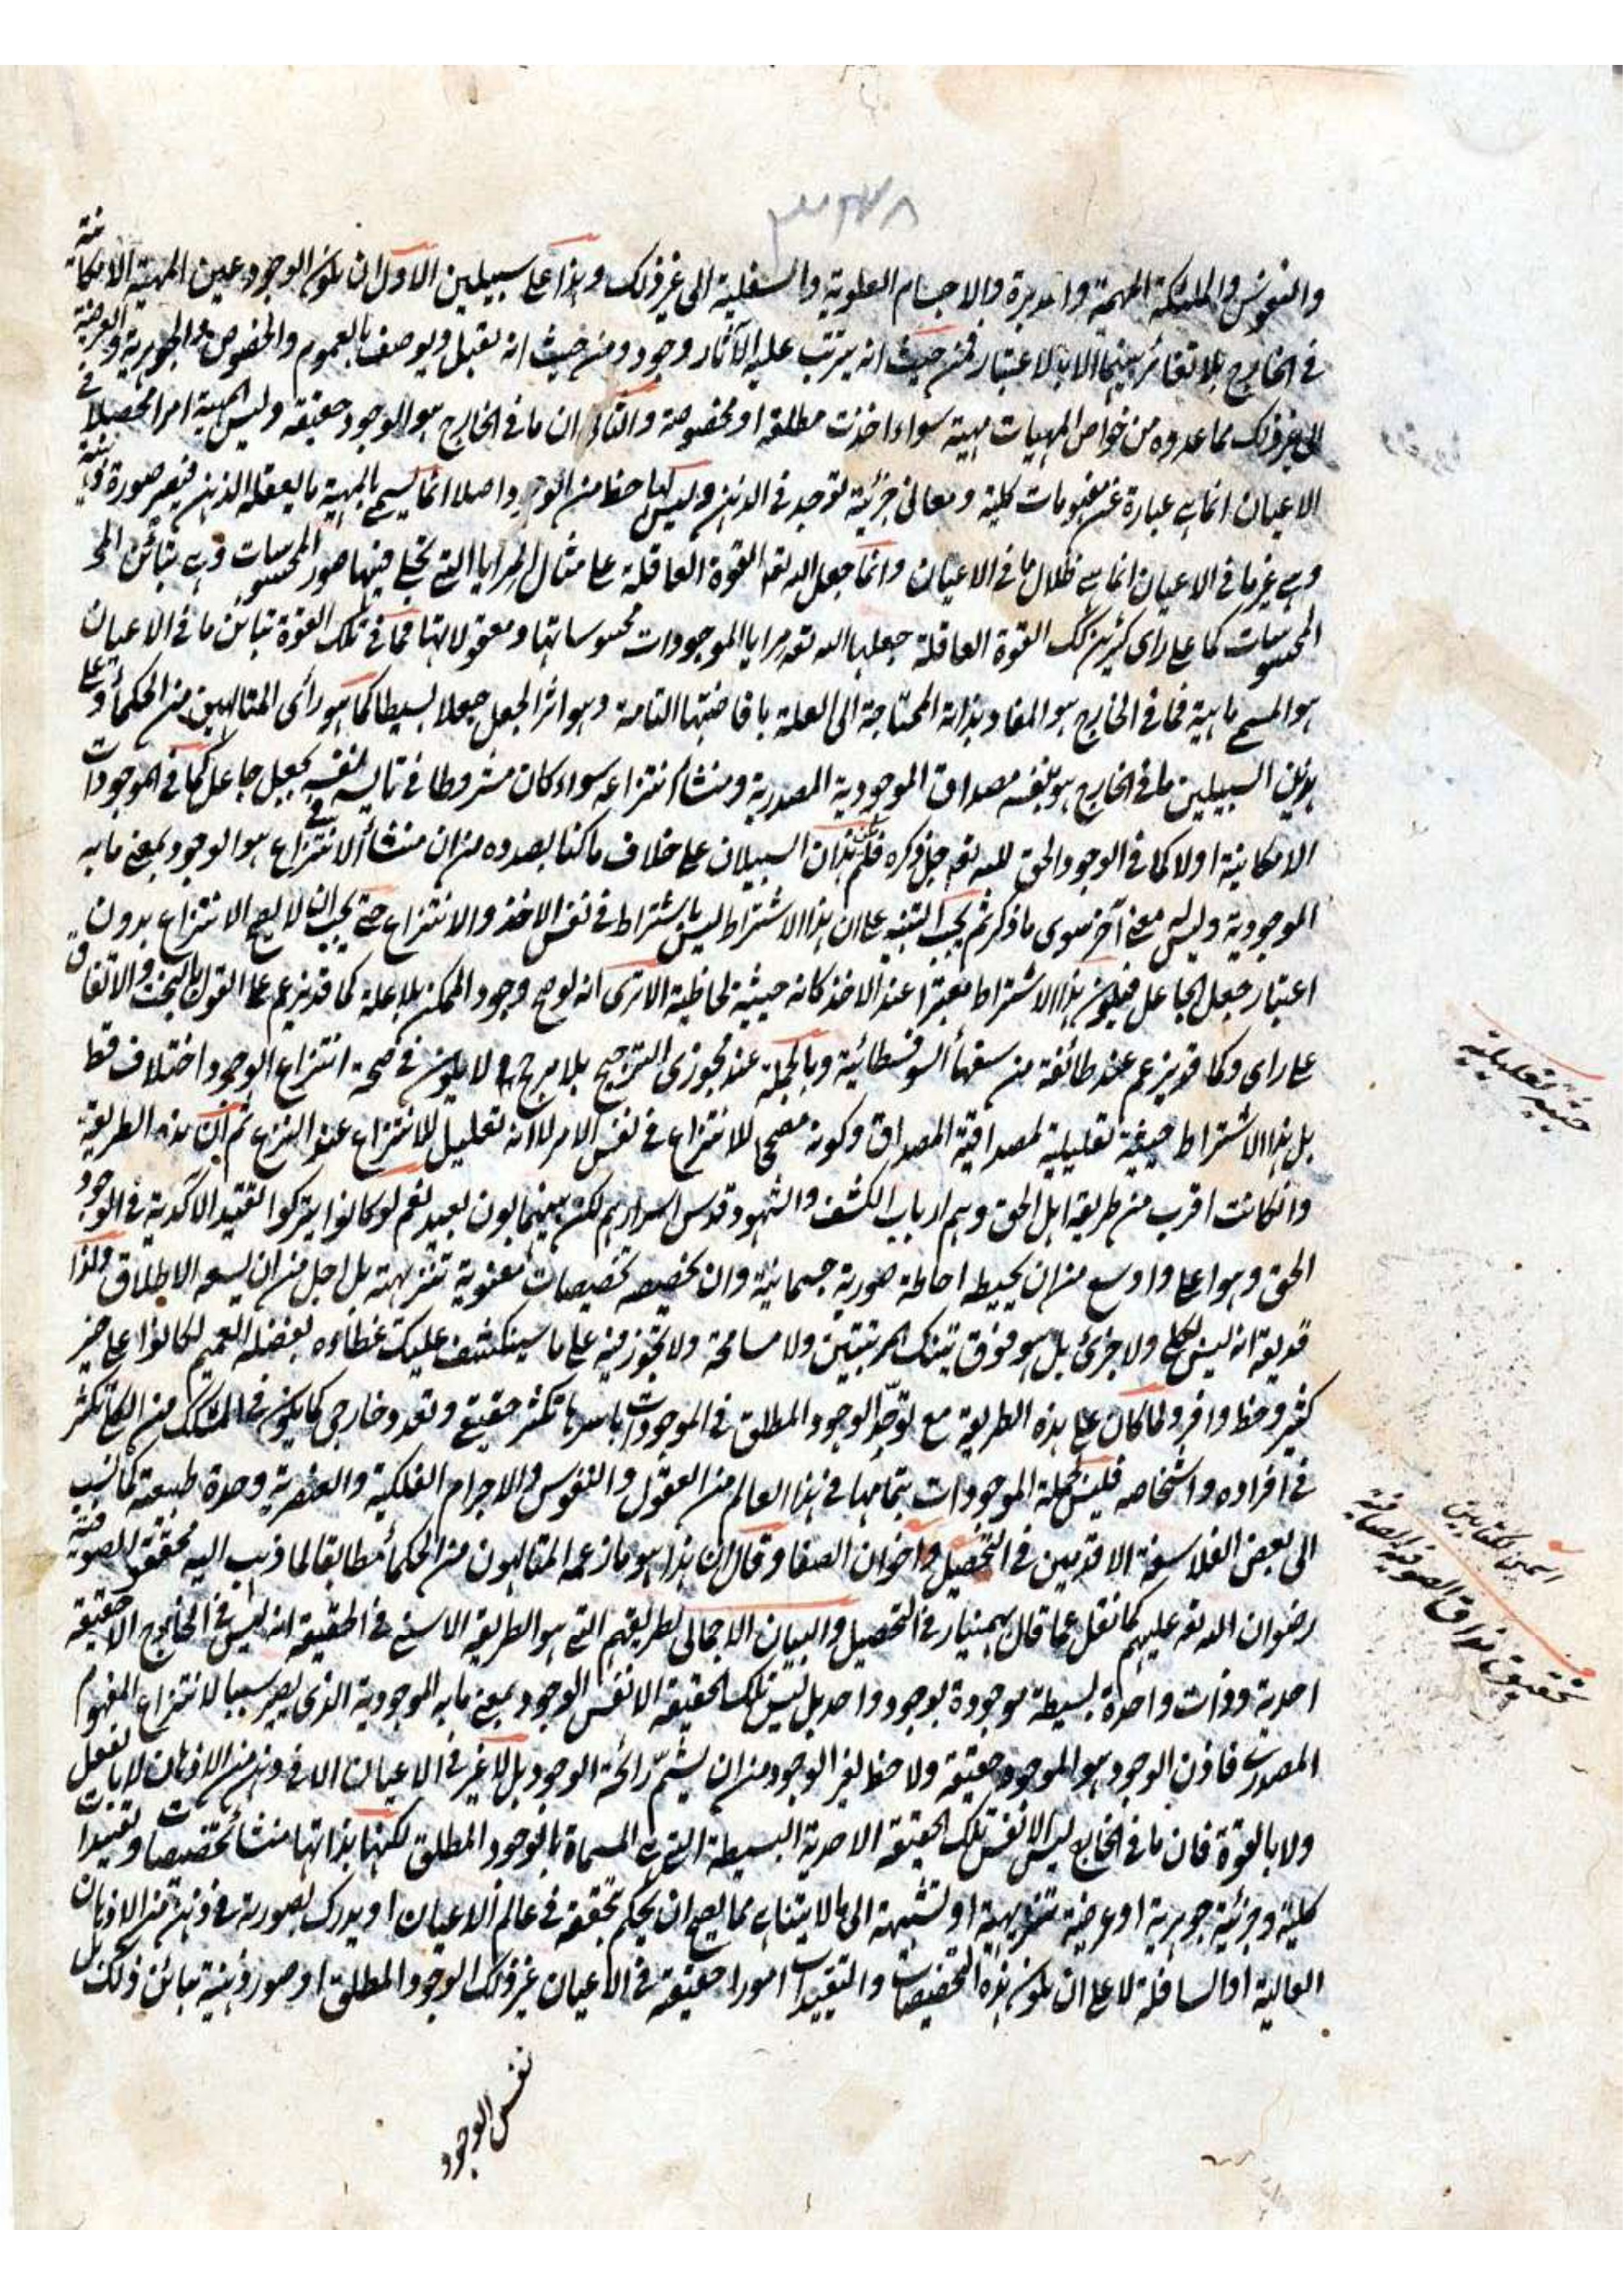 والنفوس والملئكة المهيمة والمدبرة والاجسام العلوية والسفلية الى غير ذلك وهذا على سبيلين الاول ان يكون الوجود عين المهية الامكانية
في الخارج بلا تغائر بينهما الا بالاعتبار فمن حيث انه يترتب عليه الآثار وجود ومن حيث انه يقبل ويوصف بالعموم والخصوص والجوهرية والعرضية
الى غير ذلك مما عدوه من خواص المهيات مهية سواء اخذت مطلقة او مخصوصة والثانى ان ما في الخارج هو الوجود حقيقة وليس المهية امرا محصلا في
الاعيان انما هى عبارة عن مفهومات كلية ومعانى جزئية توجد في الذهن وليس لها حظ من الوجود اصلا انما يسمى بالمهية ما يعقله الذهن فيصير صورة ذهنية
وهى غير ما في الاعيان انما هى ظلال ما في الاعيان وانما جعل الله تعه القوة العاقلة على مثال المرايا التى تجلى فيها صور المحسوسات وهى تبائن
المحسوسات كما على راى كثيرين كك القوة العاقلة جعلها الله تعه مرايا الموجودات محسوساتها ومعقولاتها فما في تلك القوة تباين ما في الاعيان
هو المسمى ماهية فما في الخارج هو المفاد بذاته المحتاجة الى العلة بافاضتها التامة وهو اثر الجعل جعلا بسيطا كما هو رأى المتالهين من الحكماء وعلى
هذين السبيلين ما في الخارج هو بنفسه مصداق الموجودية المصدرية ومنشاء انتزاعه سواء كان مشروطا في تاليسه بنفسه بجعل جاعل كما في الموجودات
الامكانية اولا كما في الوجود الحق لله تعه جل ذكره فلم يكن هذان السبيلان على خلاف ما كنا بصدده من ان منشأ الانتزاع هو الوجود بمعنى ما به
الموجودية وليس له معنى آخر سوى ما ذكر ثم يجب التنبيه على ان هذا الاشتراط ليس باشتراط في نفس الاخذ والانتزاع حتى يجب ان لا يصح الانتزاع بدون
اعتبار جعل الجاعل فيكون هذا الاشتراط معتبرا عند الاخذ كانه حيثية لحاظية الا ترى انه لو صح وجود الممكن بلا علة كما قد يزعم على القول بالبخت والاتفاق
على راى وكما قد يزعم عند طائفة من سفهاء السوفسطائية وبالجملة عند مجوزى الترجيح بلا مرجح لا يكون في صحة انتزاع الوجود اختلاف قط
بل هذا الاشتراط حيثية تعليلية لمصداقية المصداق وكونه مصححا للانتزاع في نفس الامر لا انه تعليل للانتزاع عند النزع ثم ان هذه الطريقة
وان كانت اقرب من طريقة اهل الحق وهم ارباب الكشف والشهود قدس اسرارهم لكن بينهما بون بعيد نعم لو كانوا يتركوا التقييد الاكدية في الوجود
الحق وهو اعلى واوسع من ان يحيطه احاطة صورية جسمانية وان يخصصه تخصيصات معنوية تنزيهية بل اجل من ان يسعه الاطلاق ولهذا
قد يقه انه ليس بكلى ولا جزئ بل هو فوق تينك المرتبتين ولا مسامحة ولا تجوز فيه على ما سينكشف عليك غطاءه بفضله العميم لكانوا على خير
كثير وحظ وافر ولما كان على هذه الطريقة مع توحد الوجود المطلق في الموجودات باسرها تكثر حقيقى وتعدد خارجى كما يكون في المشكك من الكلى تكثر
في افراده واشخاصه فليس لجملة الموجودات بتمامها في هذا العالم من العقول والنفوس والاجرام الفلكية والعنصرية وحدة طبيعة كما نسب
الى بعض الفلاسفة الاقدمين في التحصيل واخوان الصفا وقال ان هذا هو ما زعمه المتالهون من الحكماء مطابقا لما ذهب اليه محققو الصوفية
رضوان الله تعه عليهم كما نقل عما قال بهمنيار في التحصيل والبيان الاجمالى لطريقهم التى هو الطريقة الاسنى في الحقيقة انه ليس في الخارج الا حقيقة
احدية وذات واحدة بسيطة موجودة بوجود واحد بل ليس تلك الحقيقة الا نفس الوجود بمعنى ما به الموجودية الذى يصير سببا لانتزاع المفهوم
المصدرى فاذن الوجود هو الموجود حقيقة ولا حظ لغير الوجود من ان يشم رائحة الوجود بل لا غير في الاعيان الا في ذهن من الاذهان لا بالفعل
ولا بالقوة فان ما في الخارج ليس الا نفس تلك الحقيقة الاحدية البسيطة التى هى المسماة بالوجود المطلق لكنها بذاتها منشأ تخصيصات وتقييدات
كلية وجزئية جوهرية او عرضية تنزيهية او تشبيهية الى ما لا يتناهى مما يصح ان يحكم بتحققه في عالم الاعيان او يدرك بصورته في ذهن من الاذهان
العالية او السافلة لا على ان يكون هذه التخصيصات والتقييدات امورا حقيقة في الاعيان غير ذلك الوجود المطلق او صور ذهنية تبائن ذلك بل
نفس الوجود
حيثية تعليلية
اسمى لكتابين
تحقيق مذاق الصوفية الصافية